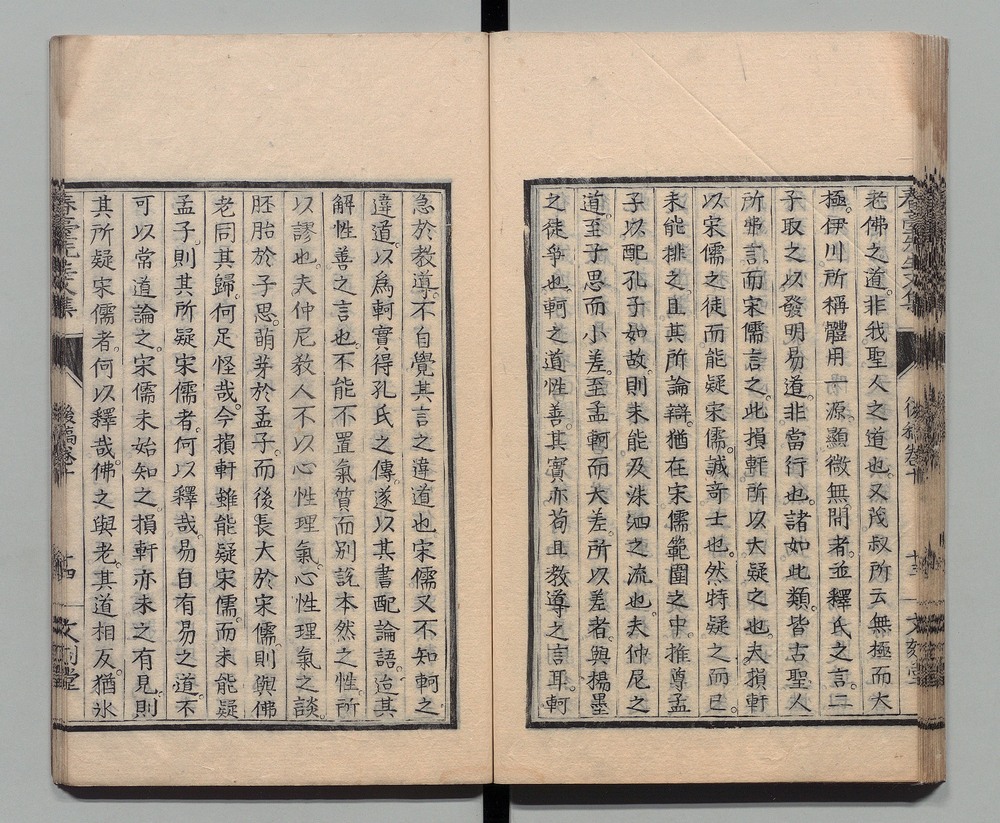 老佛之道。非我聖人之道也。又茂叔所云無極而太
極。伊川所稱體用一源。顯微無間者。並釋氏之言。二
子取之以發明易道。非當行也。諸如此類。皆古聖人
所弗言。而宋儒言之。此損軒所以大疑之也。夫損軒
以宋儒之徒而能疑宋儒。誠奇士也。然特疑之而已。
未能排之。且其所論辯。猶在宋儒範圍之中。推尊孟
子以配孔子如故。則未能及洙泗之流也。夫仲尼之
道。至子思而小差。至孟軻而大差。所以差者。與楊墨
之徒爭也。軻之道性善。其實亦苟且教導之言耳。軻
春臺先生文集
後稿卷十
十三
文刻堂
急於教導。不自覺其言之違道也。宋儒又不知軻之
違道。以爲軻實得孔氏之傳。遂以其書配論語。迨其
解性善之言也。不能不置氣質而別說本然之性。所
以謬也。夫仲尼教人不以心性理氣。心性理氣之談。
胚胎於子思。萌芽於孟子。而後長大於宋儒。則與佛
老同其歸。何足怪哉。今損軒雖能疑宋儒。而未能疑
孟子。則其所疑宋儒者。何以釋哉。易自有易之道。不
可以常道論之。宋儒未始知之。損軒亦未之有見。則
其所疑宋儒者。何以釋哉。佛之與老。其道相反。猶氷
春臺先生文集
後稿卷十
十四
文刻堂